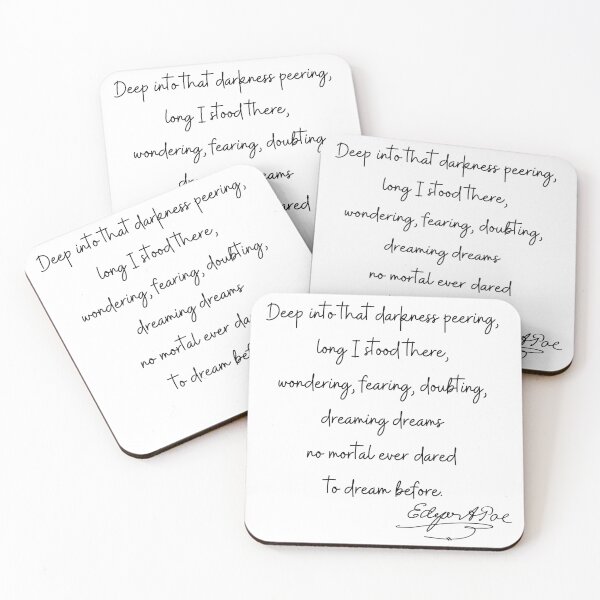 Deep into that darkness peering,
long I stood there,
wondering, fearing, doubting
dreams
dared
Deep into that darkness peering,
long I stood there,
wondering, fearing, doubting,
dreaming dreams
no mortal ever dared
A Poe
Deep into that darkness peering,
long I stood there,
wondering, fearing, doubting,
dreaming dreams
no mortal ever
to dream
Deep into that darkness peering,
long I stood there,
wondering, fearing, doubting,
dreaming dreams
no mortal ever dared
to dream before.
Edgar A Poe